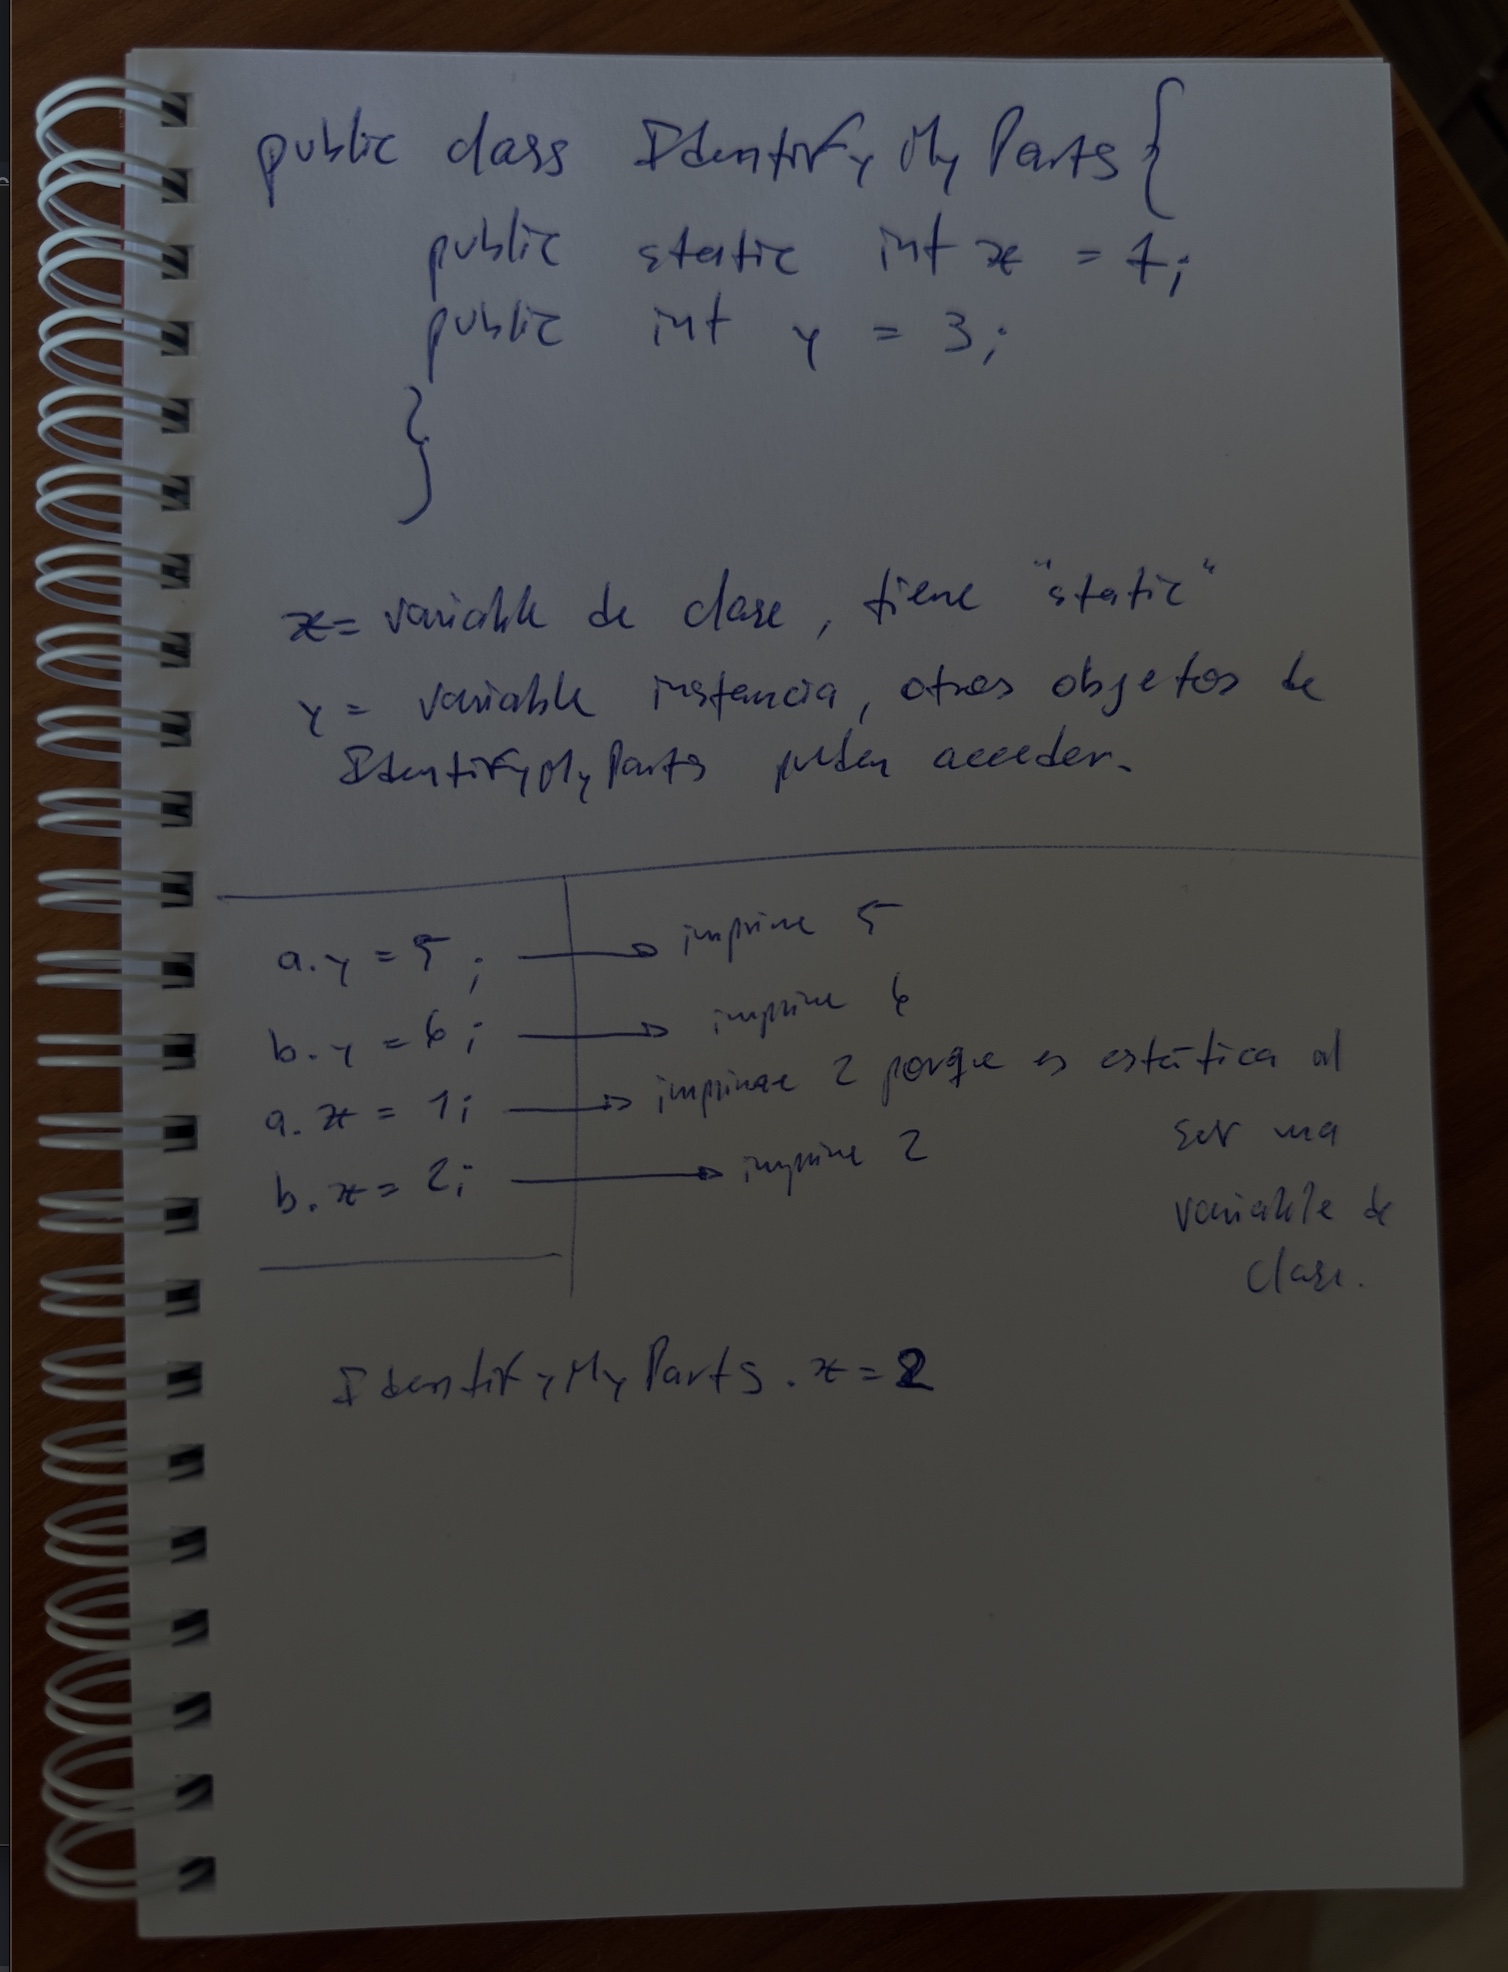 public class IdentifyMyParts {
public static int x = 7;
public int y = 3;
}
x = variable de clase, tiene "static"
y = variable instancia, otros objetos de
IdentifyMyParts pueden acceder.
a.y = 5; → imprime 5
b.y = 6; → imprime 6
a.x = 1; → imprime 2 porque es estática al
ser una
variable de
clase.
b.x = 2; → imprime 2
IdentifyMyParts.x = 2